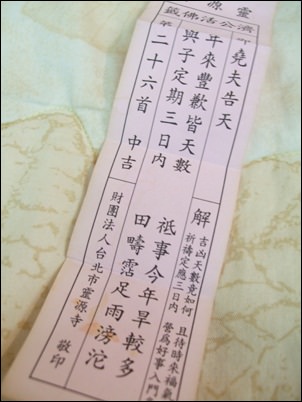 靈源
濟公活佛籤
堯夫告天
年來豐歉皆天數
祇事今年旱較多
與子定期三日內
田疇霑足雨滂沱
二十六首 中吉
解
吉凶天數竟如何 且待時來福氣
祈禱定應三日內 營為好事入門
財團法人台北市靈源寺 敬印